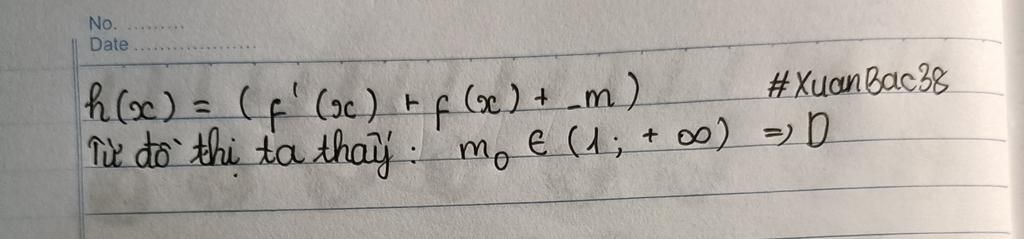 No. .........
Date ...................
h(x) = (f'(x) + f(x) + -m) #XuanBac38
Từ đồ thị ta thấy: m₀ ∈ (1; +∞) => D